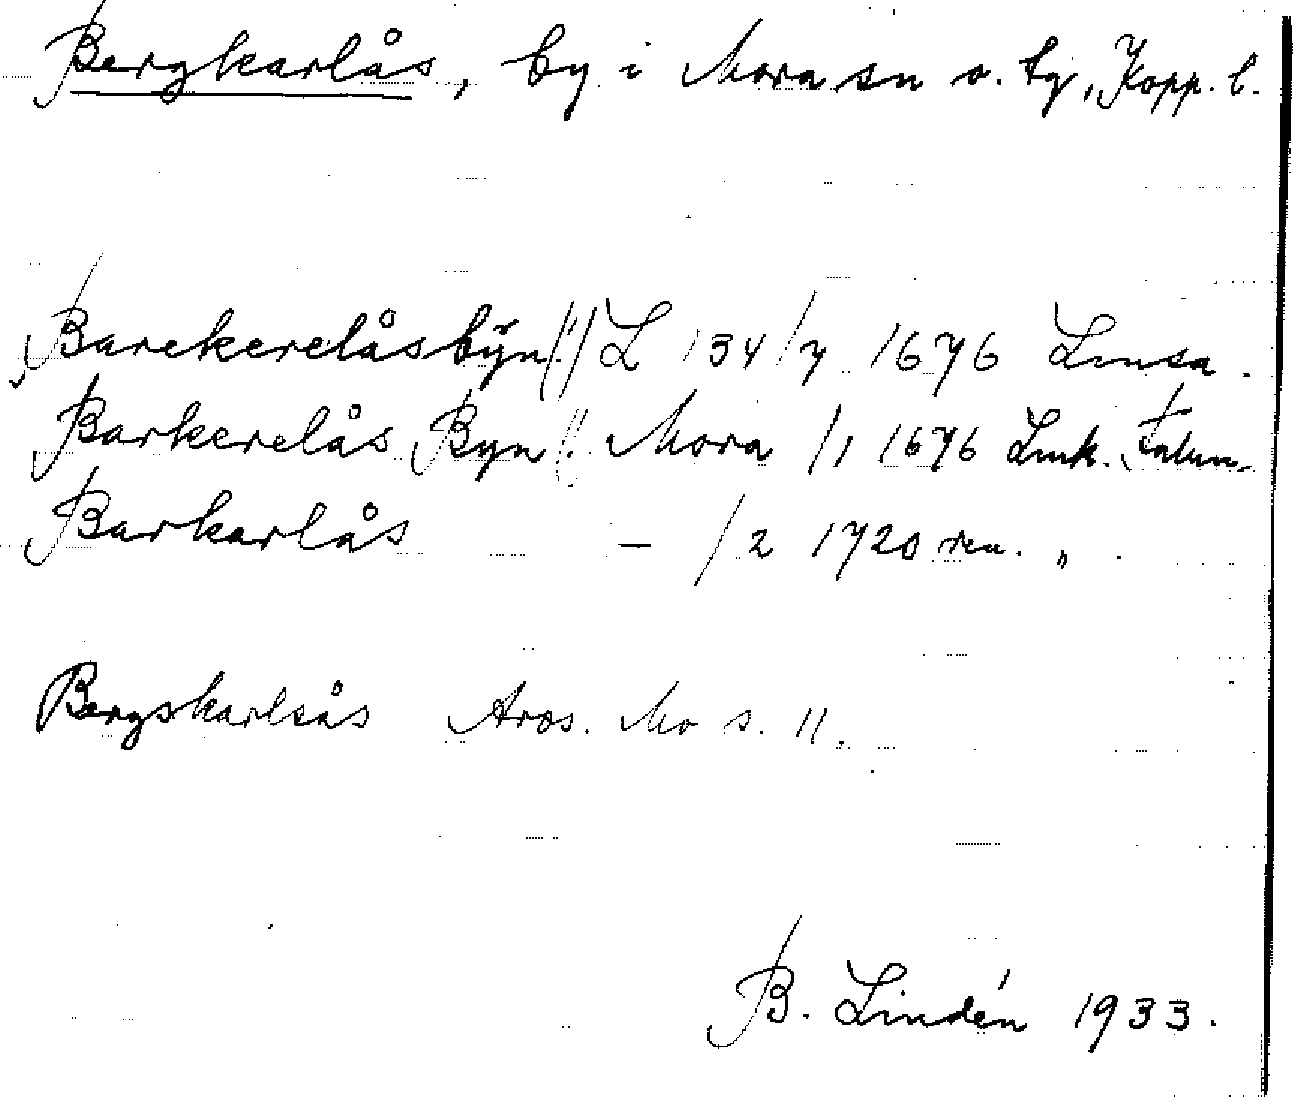 Bergkarlås, by i Mora sn o. tg, Kopp. l.
Barekerelåsbÿn (!) L 134/7 1676 Lmsa.
Barkerelås Byn (!) Mora /1 1676 Lmk. Falun.
Barkarlås — /2 1720 ren. "
Bergskarlsås Aros. Mo s. 11.
B. Lindén 1933.